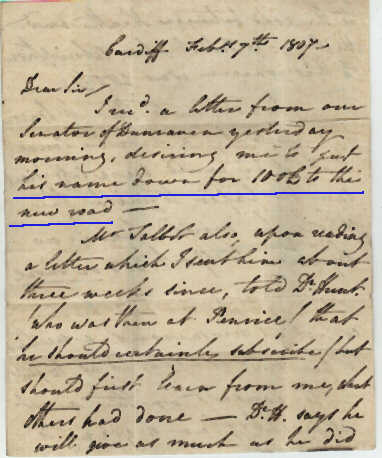 Cardiff Feb.y 7th 1807
Dear Sir,
I recd. a letter from our
Senator of Dunraven yesterday
morning, desiring me to put
his name down for 100£ to the
new road —
Mr Talbot also, upon reading
a letter which I sent him about
three weeks since, told Dr. Hunt.
(who was then at Penrice) that
he should certainly subscribe (but
should first learn from me, what
others had done — Dr. H. says he
will give as much as he did